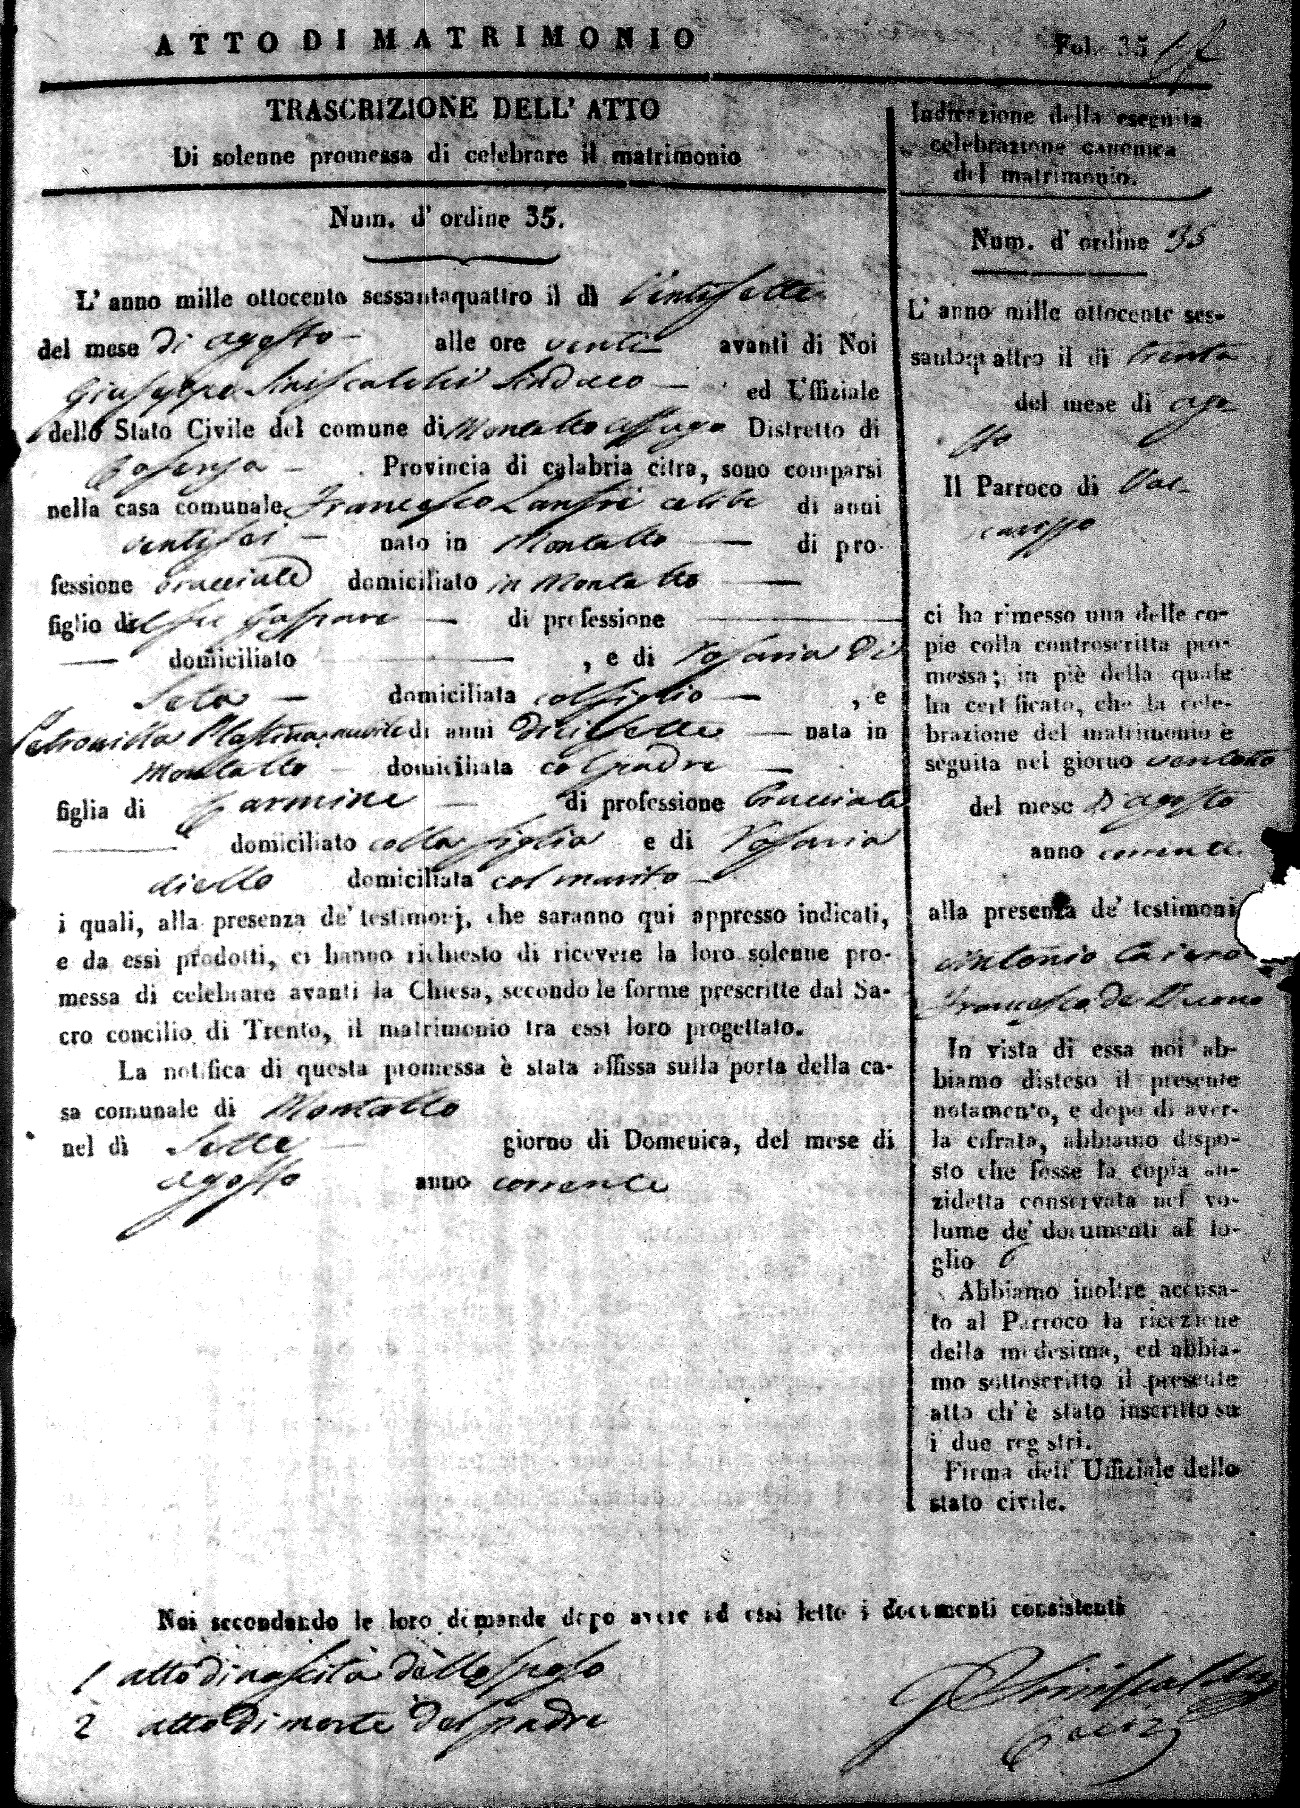 ATTO DI MATRIMONIO
Fol. 35
TRASCRIZIONE DELL' ATTO
Di solenne promessa di celebrare il matrimonio
Num. d' ordine 35.
L' anno mille ottocento sessantaquattro il dì Ventisette
del mese di agosto alle ore venti avanti di Noi
Giuseppe Siniscalchi Sindaco ed Uffiziale
dello Stato Civile del comune di Montalto Uffugo Distretto di
Cosenza . Provincia di calabria citra, sono comparsi
nella casa comunale Francesco Lanfri celibe di anni
ventisei nato in Montalto di pro-
fessione bracciale domiciliato in Montalto
figlio del fu Gaspare di professione
domiciliato , e di Rosaria Di
Seta domiciliata col figlio , e
Petronilla Plastina nubile di anni diciSette nata in
Montalto domiciliata col padre
figlia di Carmine di professione bracciale
domiciliato colla figlia e di Rosaria
Aiello domiciliata col marito
i quali, alla presenza de' testimonj, che saranno qui appresso indicati,
e da essi prodotti, ci hanno richiesto di ricevere la loro solenne pro-
messa di celebrare avanti la Chiesa, secondo le forme prescritte dal Sa-
cro concilio di Trento, il matrimonio tra essi loro progettato.
La notifica di questa promessa è stata affissa sulla porta della ca-
sa comunale di Montalto
nel dì Sette giorno di Domenica, del mese di
agosto anno corrente
Indicazione della eseguita
celebrazione canonica
del matrimonio.
Num. d' ordine 35
L' anno mille ottocento ses-
santaquattro il dì trenta
del mese di ago
sto
Il Parroco di Vac-
carizzo
ci ha rimesso una delle co-
pie colla controscritta pro-
messa; in piè della quale
ha certificato, che la cele-
brazione del matrimonio è
seguita nel giorno ventotto
del mese d'agosto
anno corrente.
alla presenza de' testimoni
Antonio Cairo
Francesco de Buono
In vista di essa noi ab-
biamo disteso il presente
notamento, e dopo di aver-
la cifrata, abbiamo dispo-
sto che fosse la copia an-
zidetta conservata nel vo-
lume de' documenti al fo-
glio 6
Abbiamo inoltre accusa-
to al Parroco la ricezione
della medesima, ed abbia-
mo sottoscritto il presente
atto ch' è stato inscritto su
i due registri.
Firma dell' Uffiziale dello
stato civile.
Noi secondando le loro dimande dopo avere ad essi letto i documenti consistenti
1 atto di nascita dello sposo
2 atto di morte del padre
G Siniscalchi